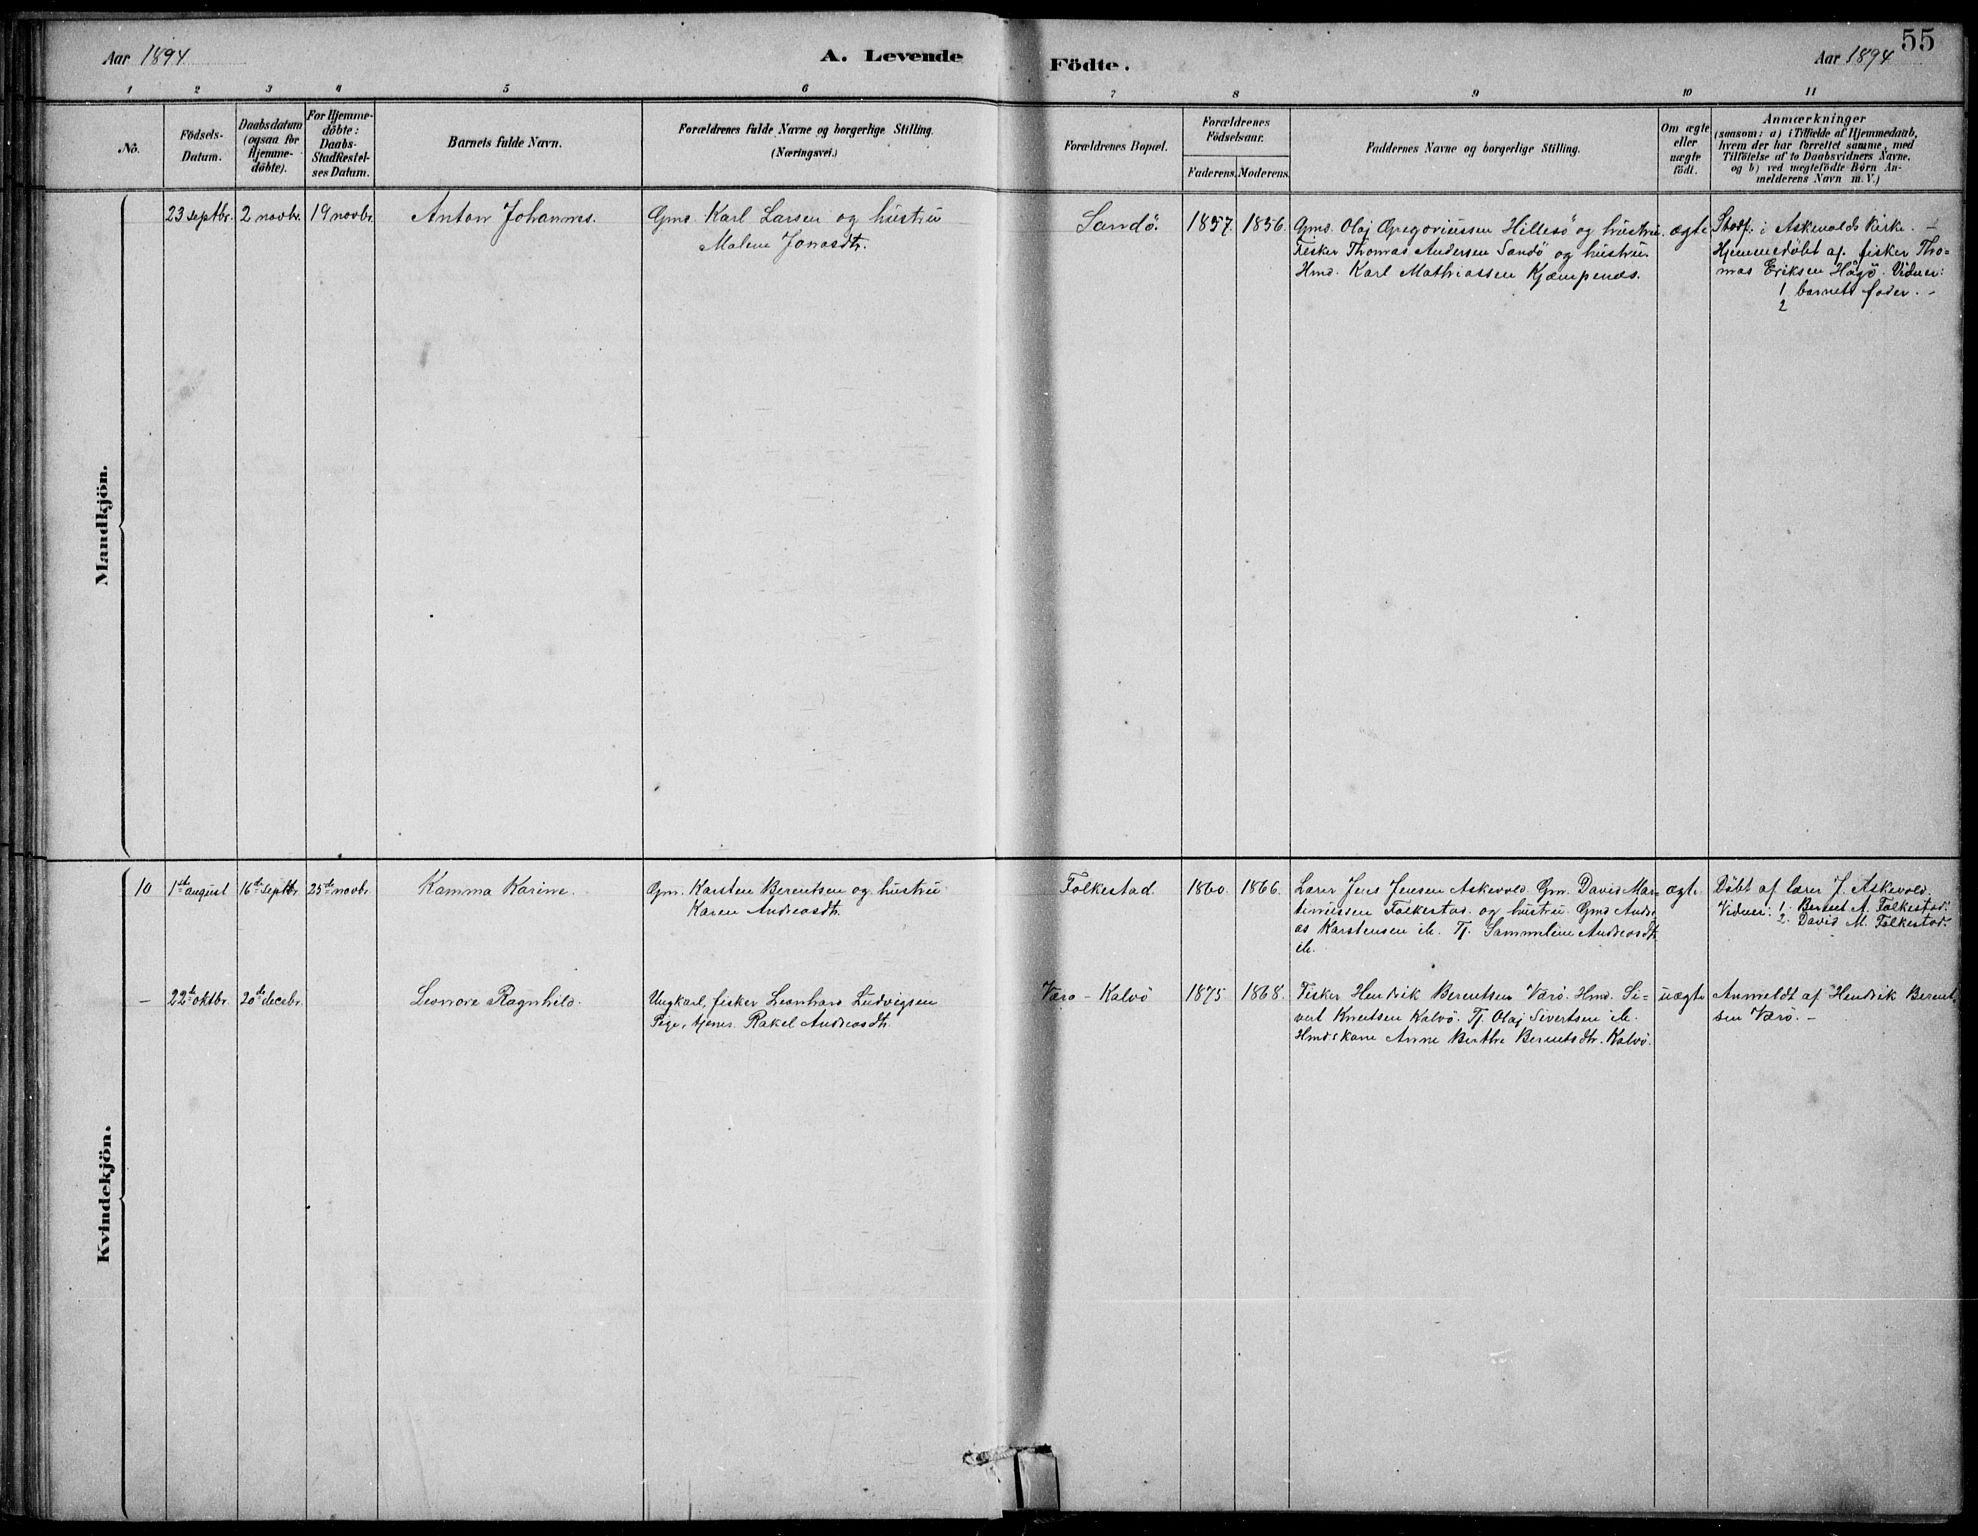 55
Aar 1894
A. Levende
Födte.
Aar 1894
1 2 3 4 5 6 7 8 9 10 11
No.
Födsels-
Datum.
Daabsdatum
(ogsaa for
Hjemme-
døbte).
For Hjemme-
døbte:
Daabs-
Stadfestel-
ses Datum.
Barnets fulde Navn.
Forældrenes fulde Navne og borgerlige Stilling.
(Næringsvei.)
Forældrenes Bopæl.
Forældrenes
Födselsaar.
Faderens. Moderens.
Faddernes Navne og borgerlige Stilling.
Om ægte
eller
uægte
født.
Anmærkninger
(saasom: a) i Tilfælde af Hjemmedaab,
hvem der har forrettet samme, med
Tilföielse af to Daabsvidners Navne,
og b) ved uægtefödte Börn An-
melderens Navn m. V.)
Mandkjön.
23 septbr. 2 novbr. 19 novbr. Anton Johannes.
Gms. Karl Larsen og hustru
Malene Jonasdtr.
Sandö. 1857. 1856.
Gms. Olaj Gregoriussen Hillesö og hustru.
Fisker Thomas Andersen Sandö og hustru.
Hmd. Karl Mathiassen Kjempenes.
ægte
Stadf. i Askevolds kirke. –
Hjemmedöbt af fisker Tho-
mas Eriksen Hågö. Vidner:
1 barnets fader. –
2
Kvindekjön.
10 1ste august 16de septbr 25de novbr. Kamma Karine.
Gm. Karsten Berentsen og hustru
Karen Andreasdtr.
Folkestad 1860. 1866.
Lærer Jens Jensen Askevold. Gm. David Mar-
tinussen Folkestad og hustru. Gms Andre
as Karstensen ib. Tj. Sammeline Andreasdtr
ib.
ægte
Döbt af lærer J. Askevold.
Vidner: 1. Berent A. Folkestad.
2. David M. Folkestad.
– 22de oktbr. 20de decbr. Leonore Ragnhild.
Ungkarl, fisker Leonhard Ludvigsen
Pige, tjener Rakel Andreasdtr.
Værö – Kalvö 1875 1868.
Fisker Hendrik Berentsen Værö. Hmd. Si-
vert Knutsen Kalvö. Tj. Olaj Sivertsen ib.
Hmdskone Anne Berthe Berentsdtr. Kalvö.
uægte
Anmeldt af Hendrik Berent-
sen Værö. –